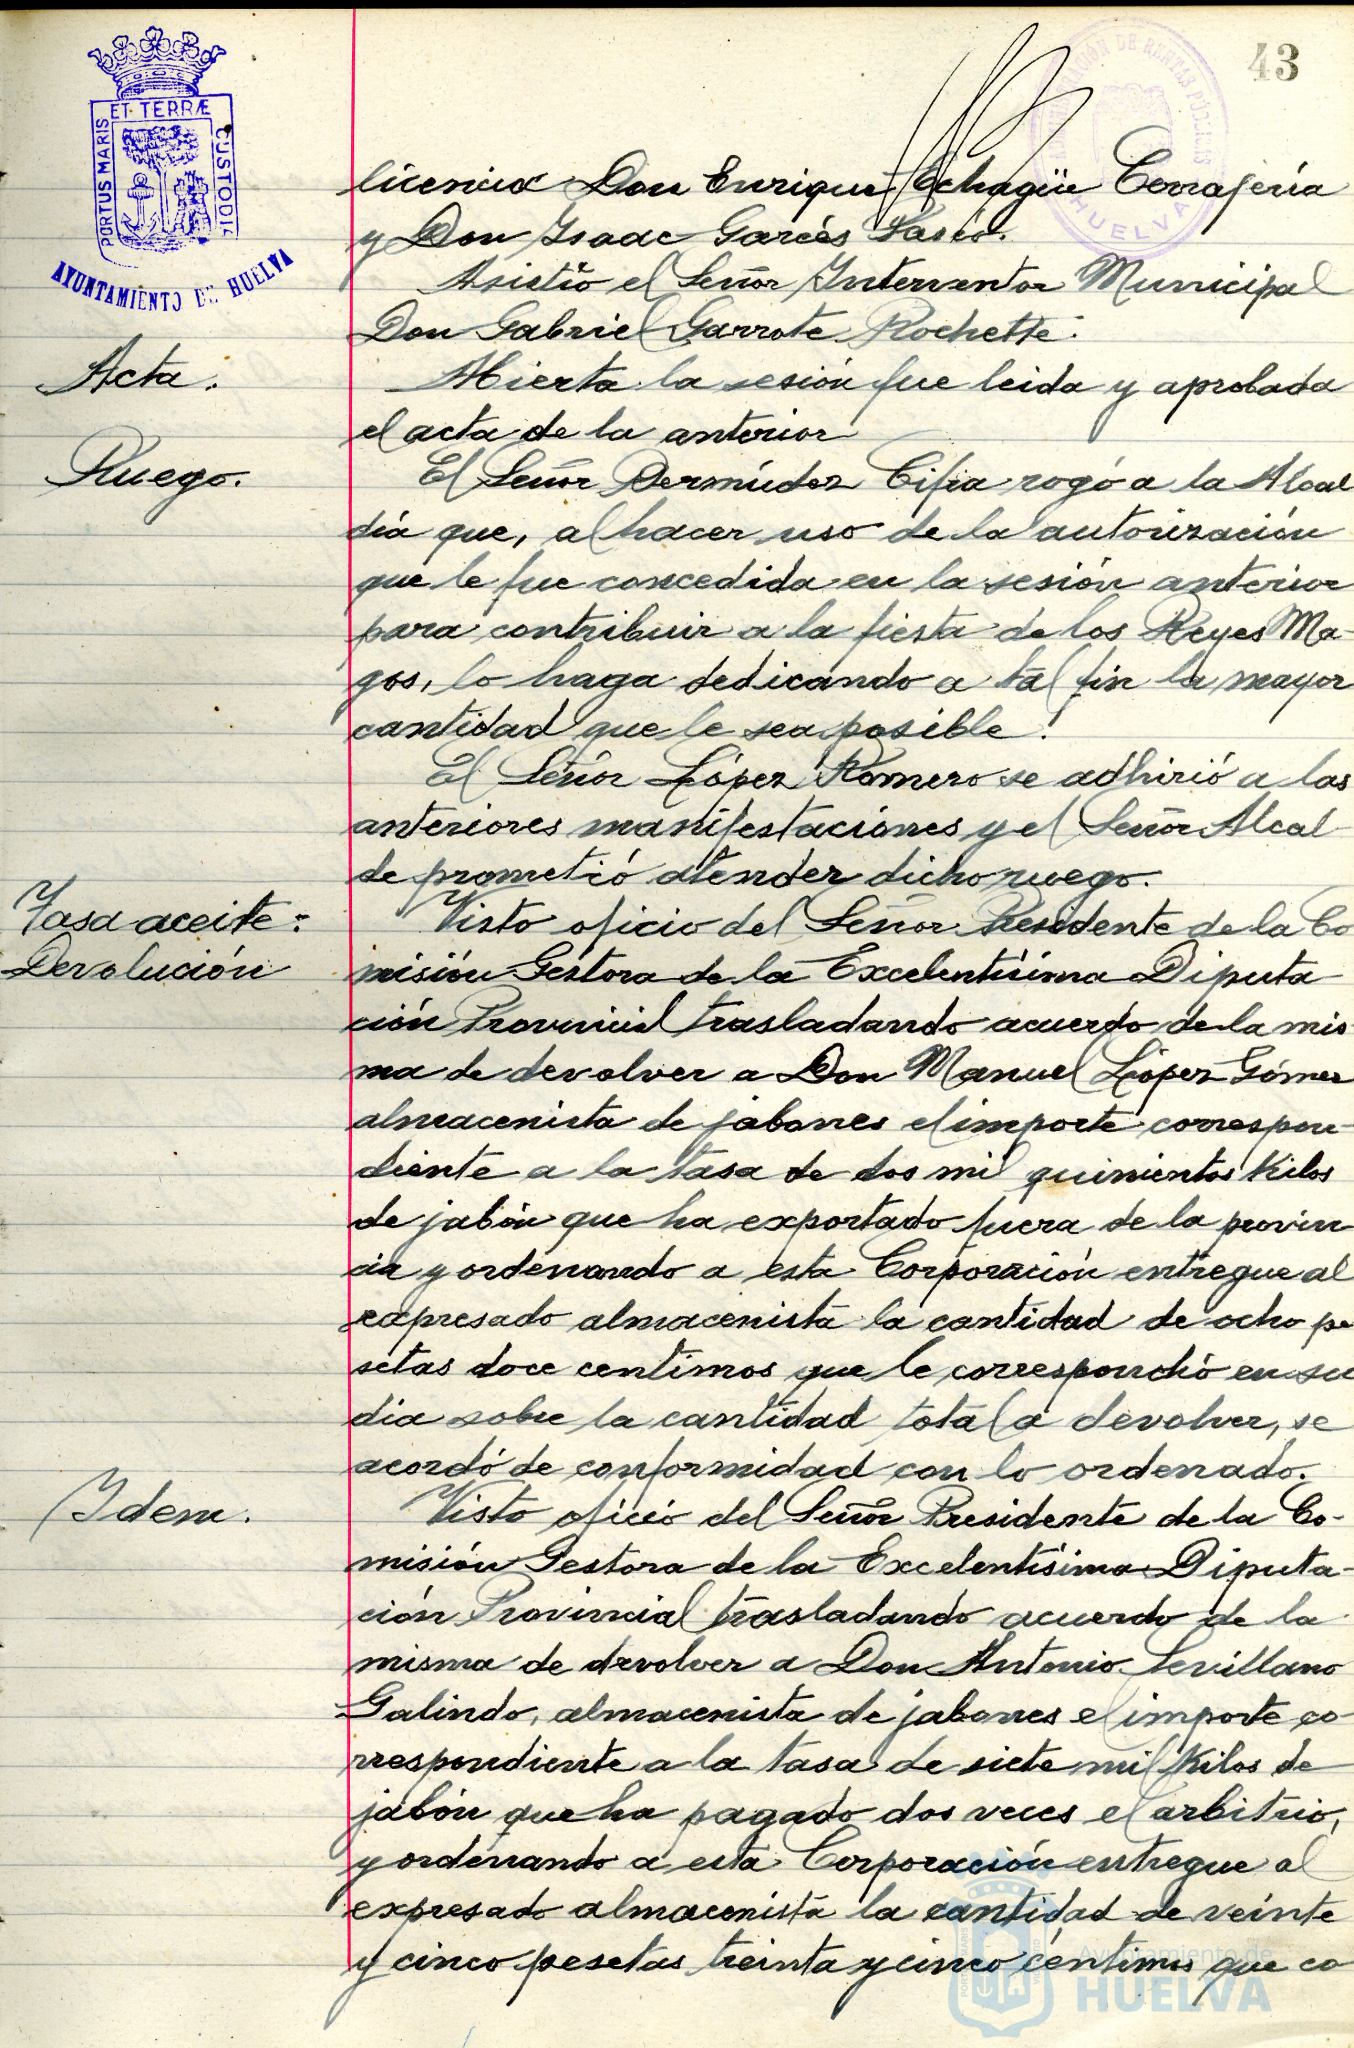 43
ET TERRÆ
PORTUS MARIS
CUSTODIA
AYUNTAMIENTO DE HUELVA
RENTAS PÚBLICAS
HUELVA
licencia Don Enrique Echagüe Cerrajería
y Don Isaac Garcés
Asistió el Señor Interventor Municipal
Don Gabriel Garrote Rochette.
Acta.
Abierta la sesión fue leida y aprobada
el acta de la anterior
Ruego.
El Señor Bermúdez Cifia rogó a la Alcal
día que, al hacer uso de la autorización
que le fue concedida en la sesión anterior
para contribuir a la fiesta de los Reyes Ma-
gos, lo haga dedicando a tal fin la mayor
cantidad que le sea posible.
El Señor López Romero se adhirió a las
anteriores manifestaciones y el Señor Alcal-
de prometió atender dicho ruego.
Tasa aceite:
Devolución
Visto oficio del Señor Presidente de la Co
misión Gestora de la Excelentísima Diputa
ción Provincial trasladando acuerdo de la mis
ma de devolver a Don Manuel López Gómez
almacenista de jabones el importe correspon-
diente a la tasa de dos mil quinientos Kilos
de jabón que ha exportado fuera de la provin
cia y ordenando a esta Corporación entregue al
expresado almacenista la cantidad de ocho pe
setas doce centimos que le correspondió en su
dia sobre la cantidad total a devolver, se
acordó de conformidad con lo ordenado.
Idem.
Visto oficio del Señor Presidente de la Co-
misión Gestora de la Excelentísima Diputa-
ción Provincial trasladando acuerdo de la
misma de devolver a Don Antonio Sevillano
Galindo, almacenista de jabones el importe co-
rrespondiente a la tasa de siete mil Kilos de
jabón que ha pagado dos veces el arbitrio,
y ordenando a esta Corporación entregue al
expresado almacenista la cantidad de veinte
y cinco pesetas treinta y cinco céntimos que co
Ayuntamiento de
HUELVA